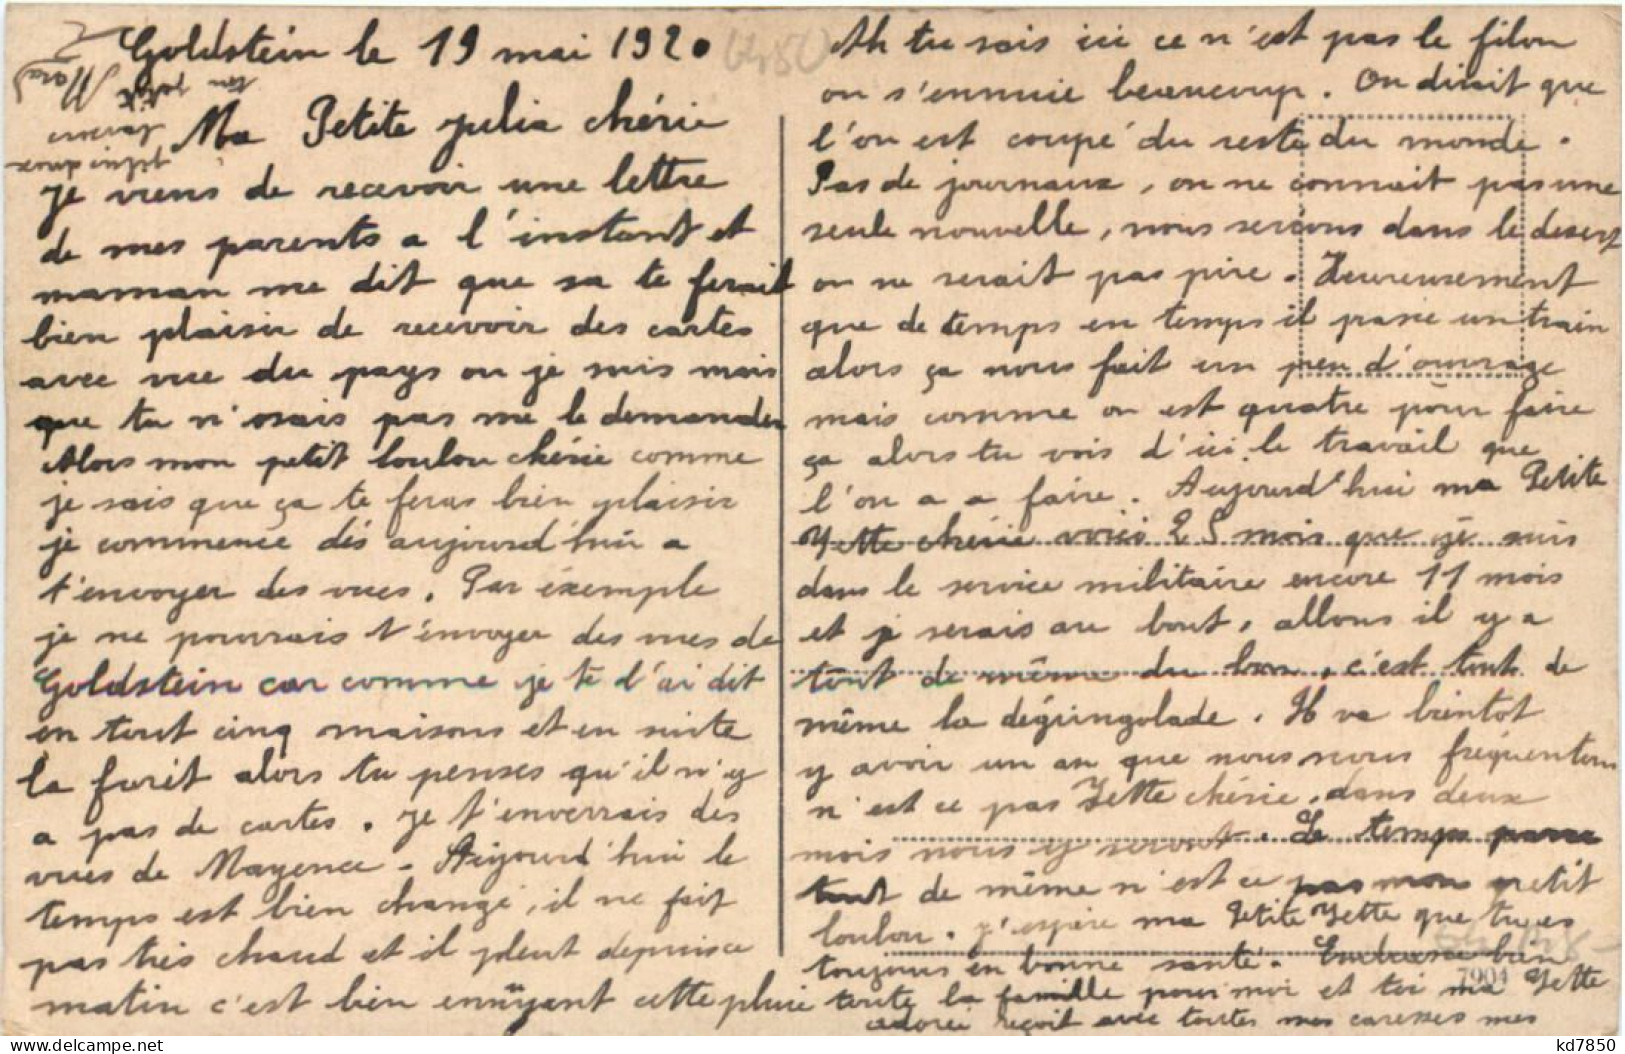 Goldstein le 19 mai 1920
Ma Petite Julia chérie
je viens de recevoir une lettre
de mes parents a l'instant et
maman me dit que sa te ferait
bien plaisir de recevoir des cartes
avec vue du pays ou je suis mais
que tu n'osais pas me le demander
Alors mon petit loulou chérie comme
je sais que ça te feras bien plaisir
je commence dés aujourd'hui a
t'envoyer des vues. Par éxemple
je ne pourrais t'envoyer des vues de
Goldstein car comme je te l'ai dit
en tout cinq maisons et en suite
la forêt alors tu penses qu'il n'y
a pas de cartes. Je t'enverrais des
vues de Mayence - Aujourd'hui le
temps est bien changé, il ne fait
pas très chaud et il pleut depuis ce
matin c'est bien ennuyant cette pluie
Ah tu sais ici ce n'est pas le filon
on s'ennuie beaucoup. On dirait que
l'on est coupé du reste du monde.
Pas de journaux, on ne connait pas une
seule nouvelle, nous serions dans le desert
on ne serait pas pire. Heureusement
que de temps en temps il passe un train
alors ça nous fait un peu d'ouvrage
mais comme on est quatre pour faire
ça alors tu vois d'ici le travail que
l'on a a faire. Aujourd'hui ma Petite
Yette chérie voici 25 mois que je suis
dans le service militaire encore 11 mois
et je serais au bout, allons il y a
tout de même du bon, c'est tout de
même la dégringolade. Il va bientot
y avoir un an que nous nous fréquentons
n'est ce pas Yette chérie, dans deux
mois nous y seront. Le temps passe
tout de même n'est ce pas mon petit
loulou. J'espère ma Petite Yette que tu es
toujours en bonne santé. Embrasse bien
toute la famille pour moi et toi ma Yette
adorée reçoit avec toutes mes caresses mes
plus doux
ton petit
7901
kd7850